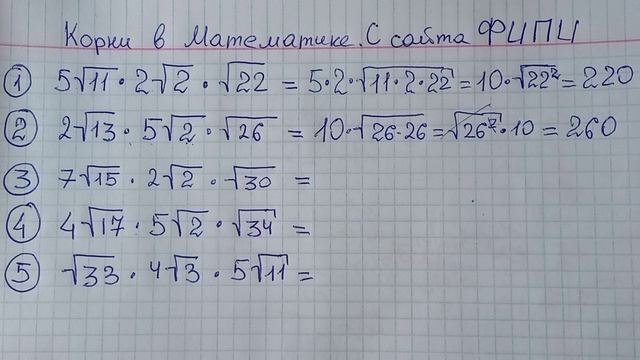 Корни в Математике. С сайта ФИПИ
① 5√11 · 2√2 · √22 = 5·2·√11·2·22 = 10·√22² = 220
② 2√13 · 5√2 · √26 = 10·√26·26 = √26²·10 = 260
③ 7√15 · 2√2 · √30 =
④ 4√17 · 5√2 · √34 =
⑤ √33 · 4√3 · 5√11 =